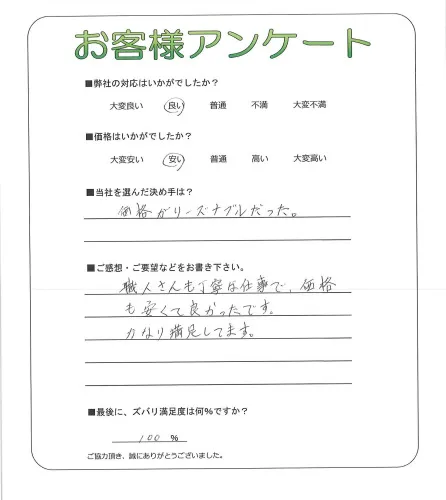 お客様アンケート
■弊社の対応はいかがでしたか？
大変良い 良い 普通 不満 大変不満
■価格はいかがでしたか？
大変安い 安い 普通 高い 大変高い
■当社を選んだ決め手は？
価格がリーズナブルだった。
■ご感想・ご要望などをお書き下さい。
職人さんも丁寧な仕事で、価格
も安くて良かったです。
かなり満足してます。
■最後に、ズバリ満足度は何％ですか？
100 %
ご協力頂き、誠にありがとうございました。